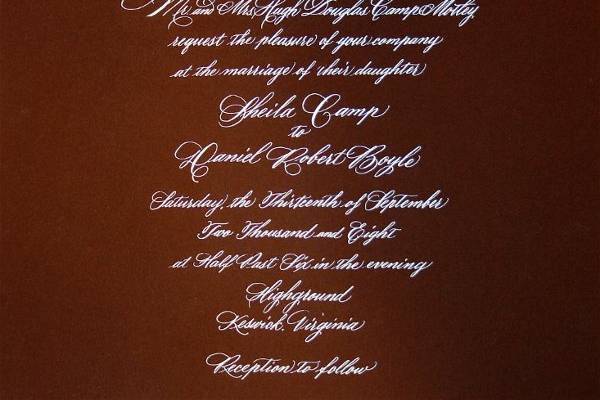 Mr. and Mrs. Hugh Douglas Camp Motley
request the pleasure of your company
at the marriage of their daughter
Sheila Camp
to
Daniel Robert Boyle
Saturday, the Thirteenth of September
Two Thousand and Eight
at Half Past Six in the evening
Highground
Keswick, Virginia
Reception to follow